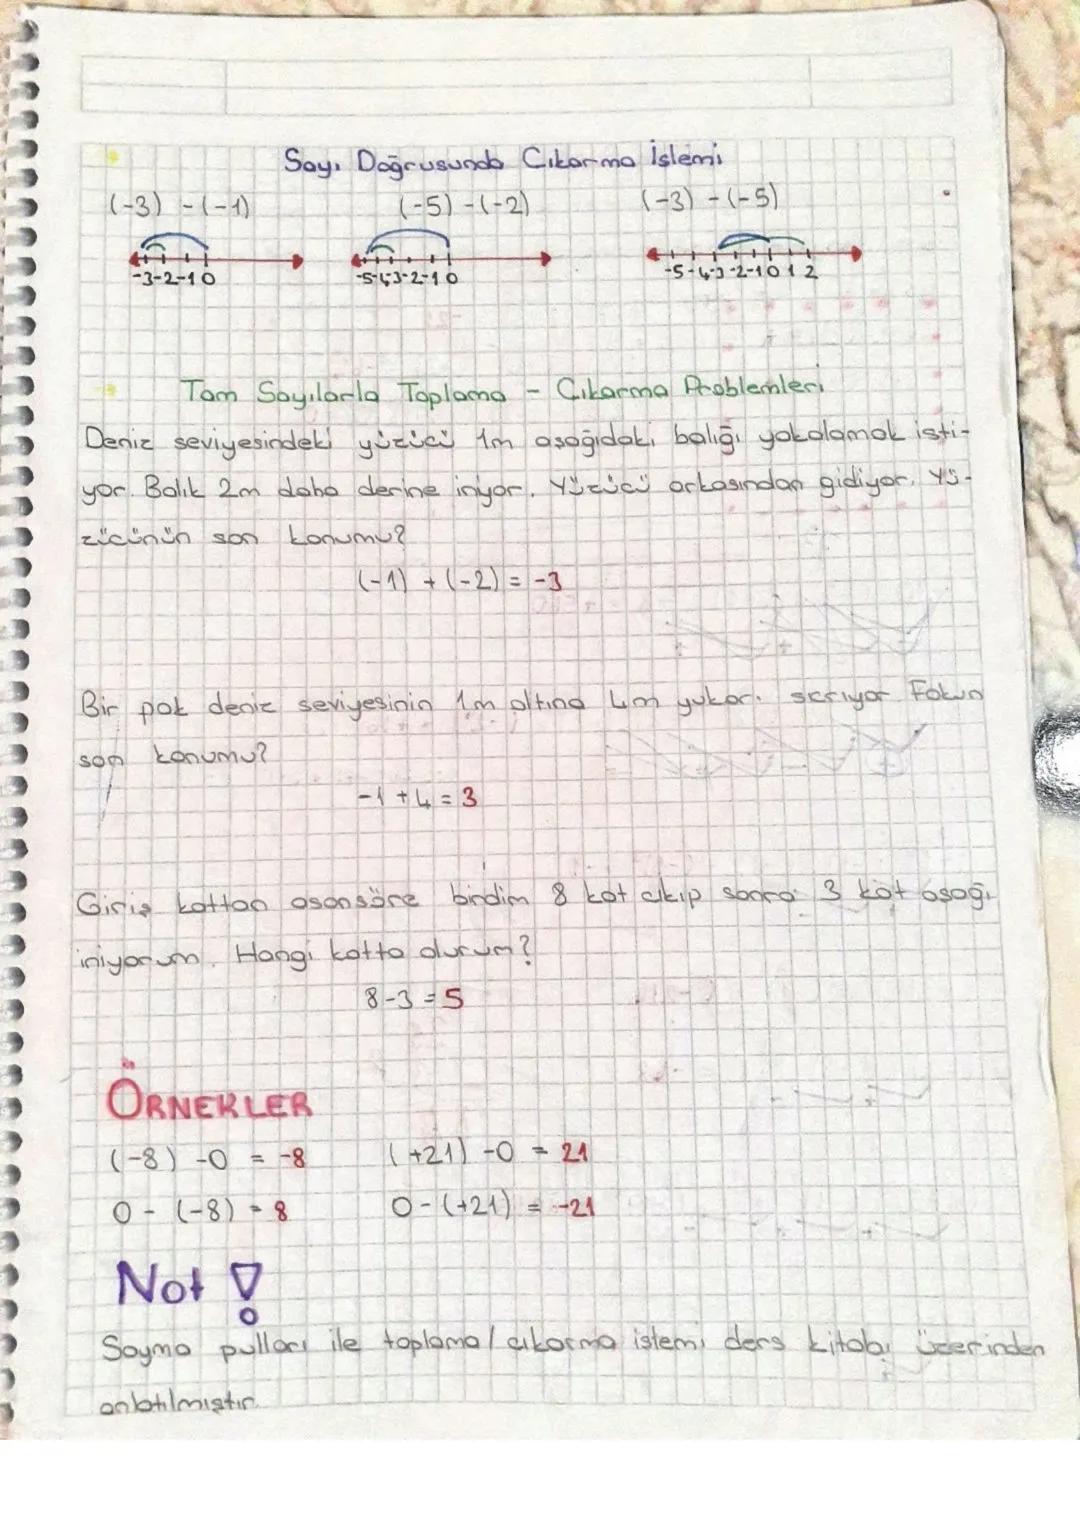 Sayı Doğrusunda Çıkarma İşlemi
(-3) -(-1) (-5) -(-2) (-3) -(-5)
-3-2-1 0 -5-4-3-2-1 0 -5-4-3-2-1 0 1 2
Tam Sayılarla Toplama - Çıkarma Problemleri
Deniz seviyesindeki yüzücü 1m aşağıdaki balığı yakalamak isti-
yor. Balık 2m daha derine iniyor. Yüzücü arkasından gidiyor. Yü-
zücünün son konumu?
(-1) + (-2) = -3
Bir pok deniz seviyesinin 1m altına 4m yukarı sıçrıyor Fokun
son konumu?
-1 + 4 = 3
Giriş kattan asansöre bindim 8 kat çıkıp sonra 3 kat aşağı
iniyorum. Hangi katta olurum?
8-3 = 5
ÖRNEKLER
(-8) -0 = -8 (+21) -0 = 21
0 - (-8) = 8 0-(+21) = -21
Not !
Sayma pulları ile toplama/çıkarma işlemi ders kitabı üzerinden
anlatılmıştır.